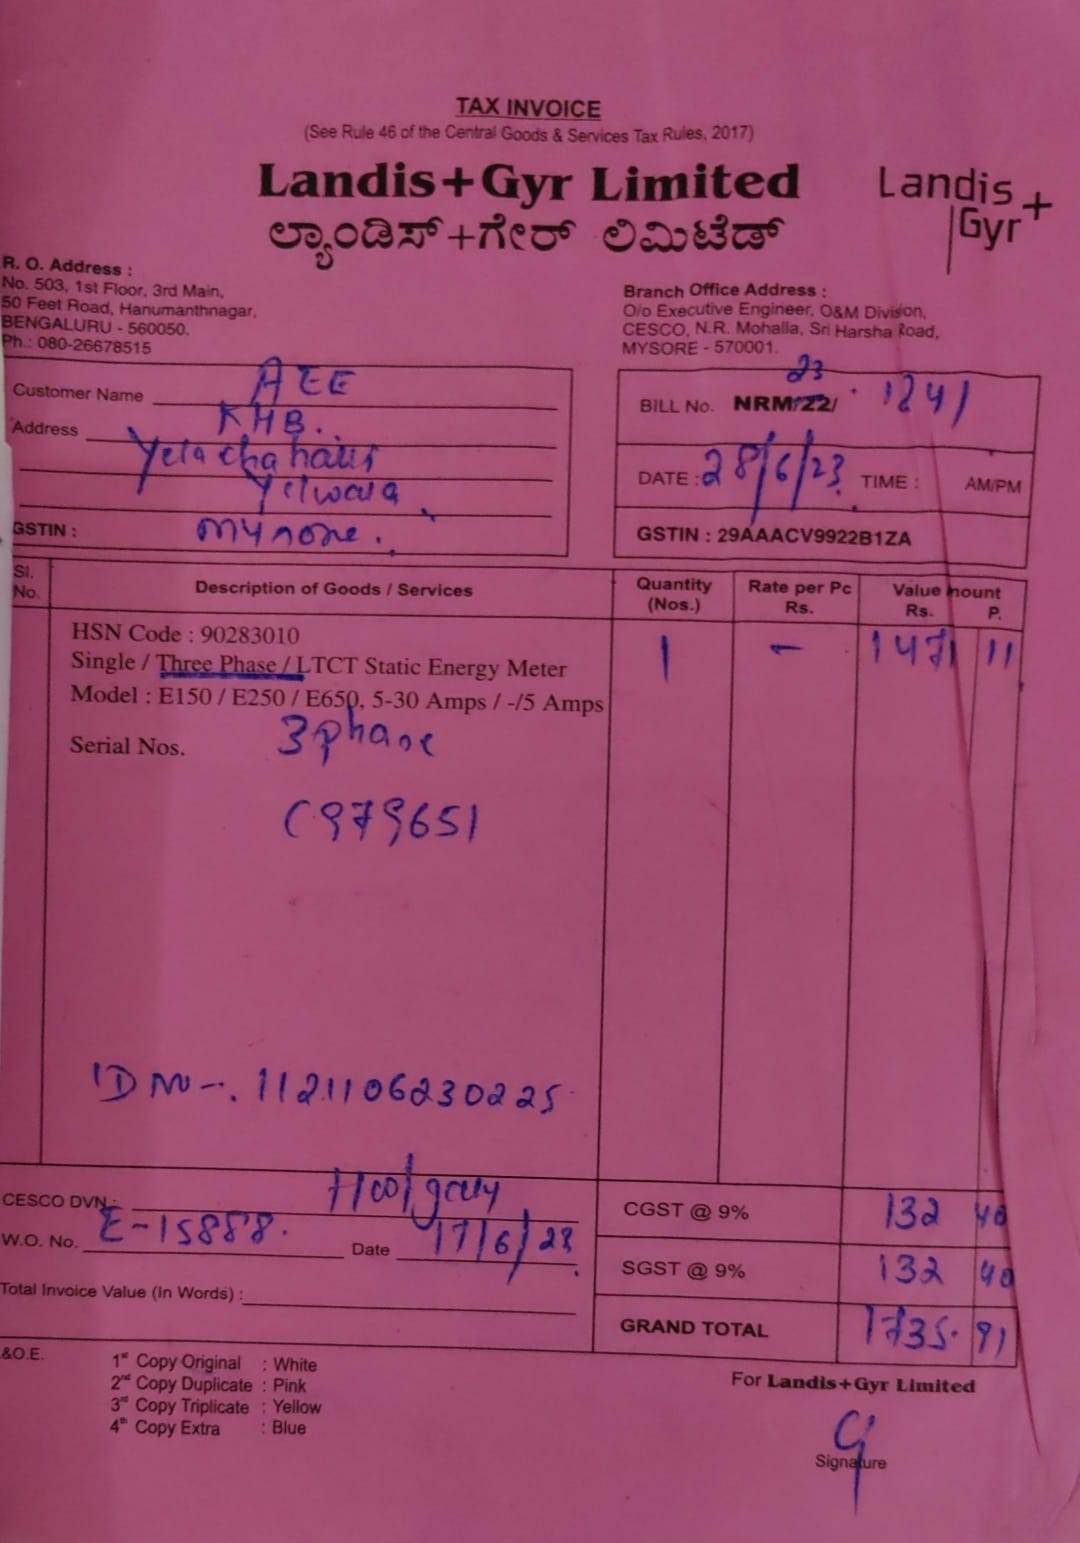 TAX INVOICE
(See Rule 46 of the Central Goods & Services Tax Rules, 2017)
Landis+Gyr Limited
ಲ್ಯಾಂಡಿಸ್+ಗೇರ್ ಲಿಮಿಟೆಡ್
Landis+
Gyr
R. O. Address :
No. 503, 1st Floor, 3rd Main,
50 Feet Road, Hanumanthnagar,
BENGALURU - 560050.
Ph.: 080-26678515
Branch Office Address :
O/o Executive Engineer, O&M Division,
CESCO, N.R. Mohalla, Sri Harsha Road,
MYSORE - 570001.
Customer Name AEE
Address KHB.
Yelwala
GSTIN : mysore.
BILL No. NRM/22/ 23 1241
DATE : 28/6/23 TIME : AM/PM
GSTIN : 29AAACV9922B1ZA
Sl. No. Description of Goods / Services Quantity (Nos.) Rate per Pc Rs. Value mount Rs. P.
HSN Code : 90283010 1 - 1471 11
Single / Three Phase / LTCT Static Energy Meter
Model : E150 / E250 / E650, 5-30 Amps / -/5 Amps
Serial Nos. 3 phase
C979651
ID No -. 1121106230225
CESCO DVN :
W.O. No. E-15888. Date 17/6/23
Total Invoice Value (In Words) :
CGST @ 9% 132 40
SGST @ 9% 132 40
GRAND TOTAL 1735. 91
&O.E.
1st Copy Original : White
2nd Copy Duplicate : Pink
3rd Copy Triplicate : Yellow
4th Copy Extra : Blue
For Landis+Gyr Limited
Signature